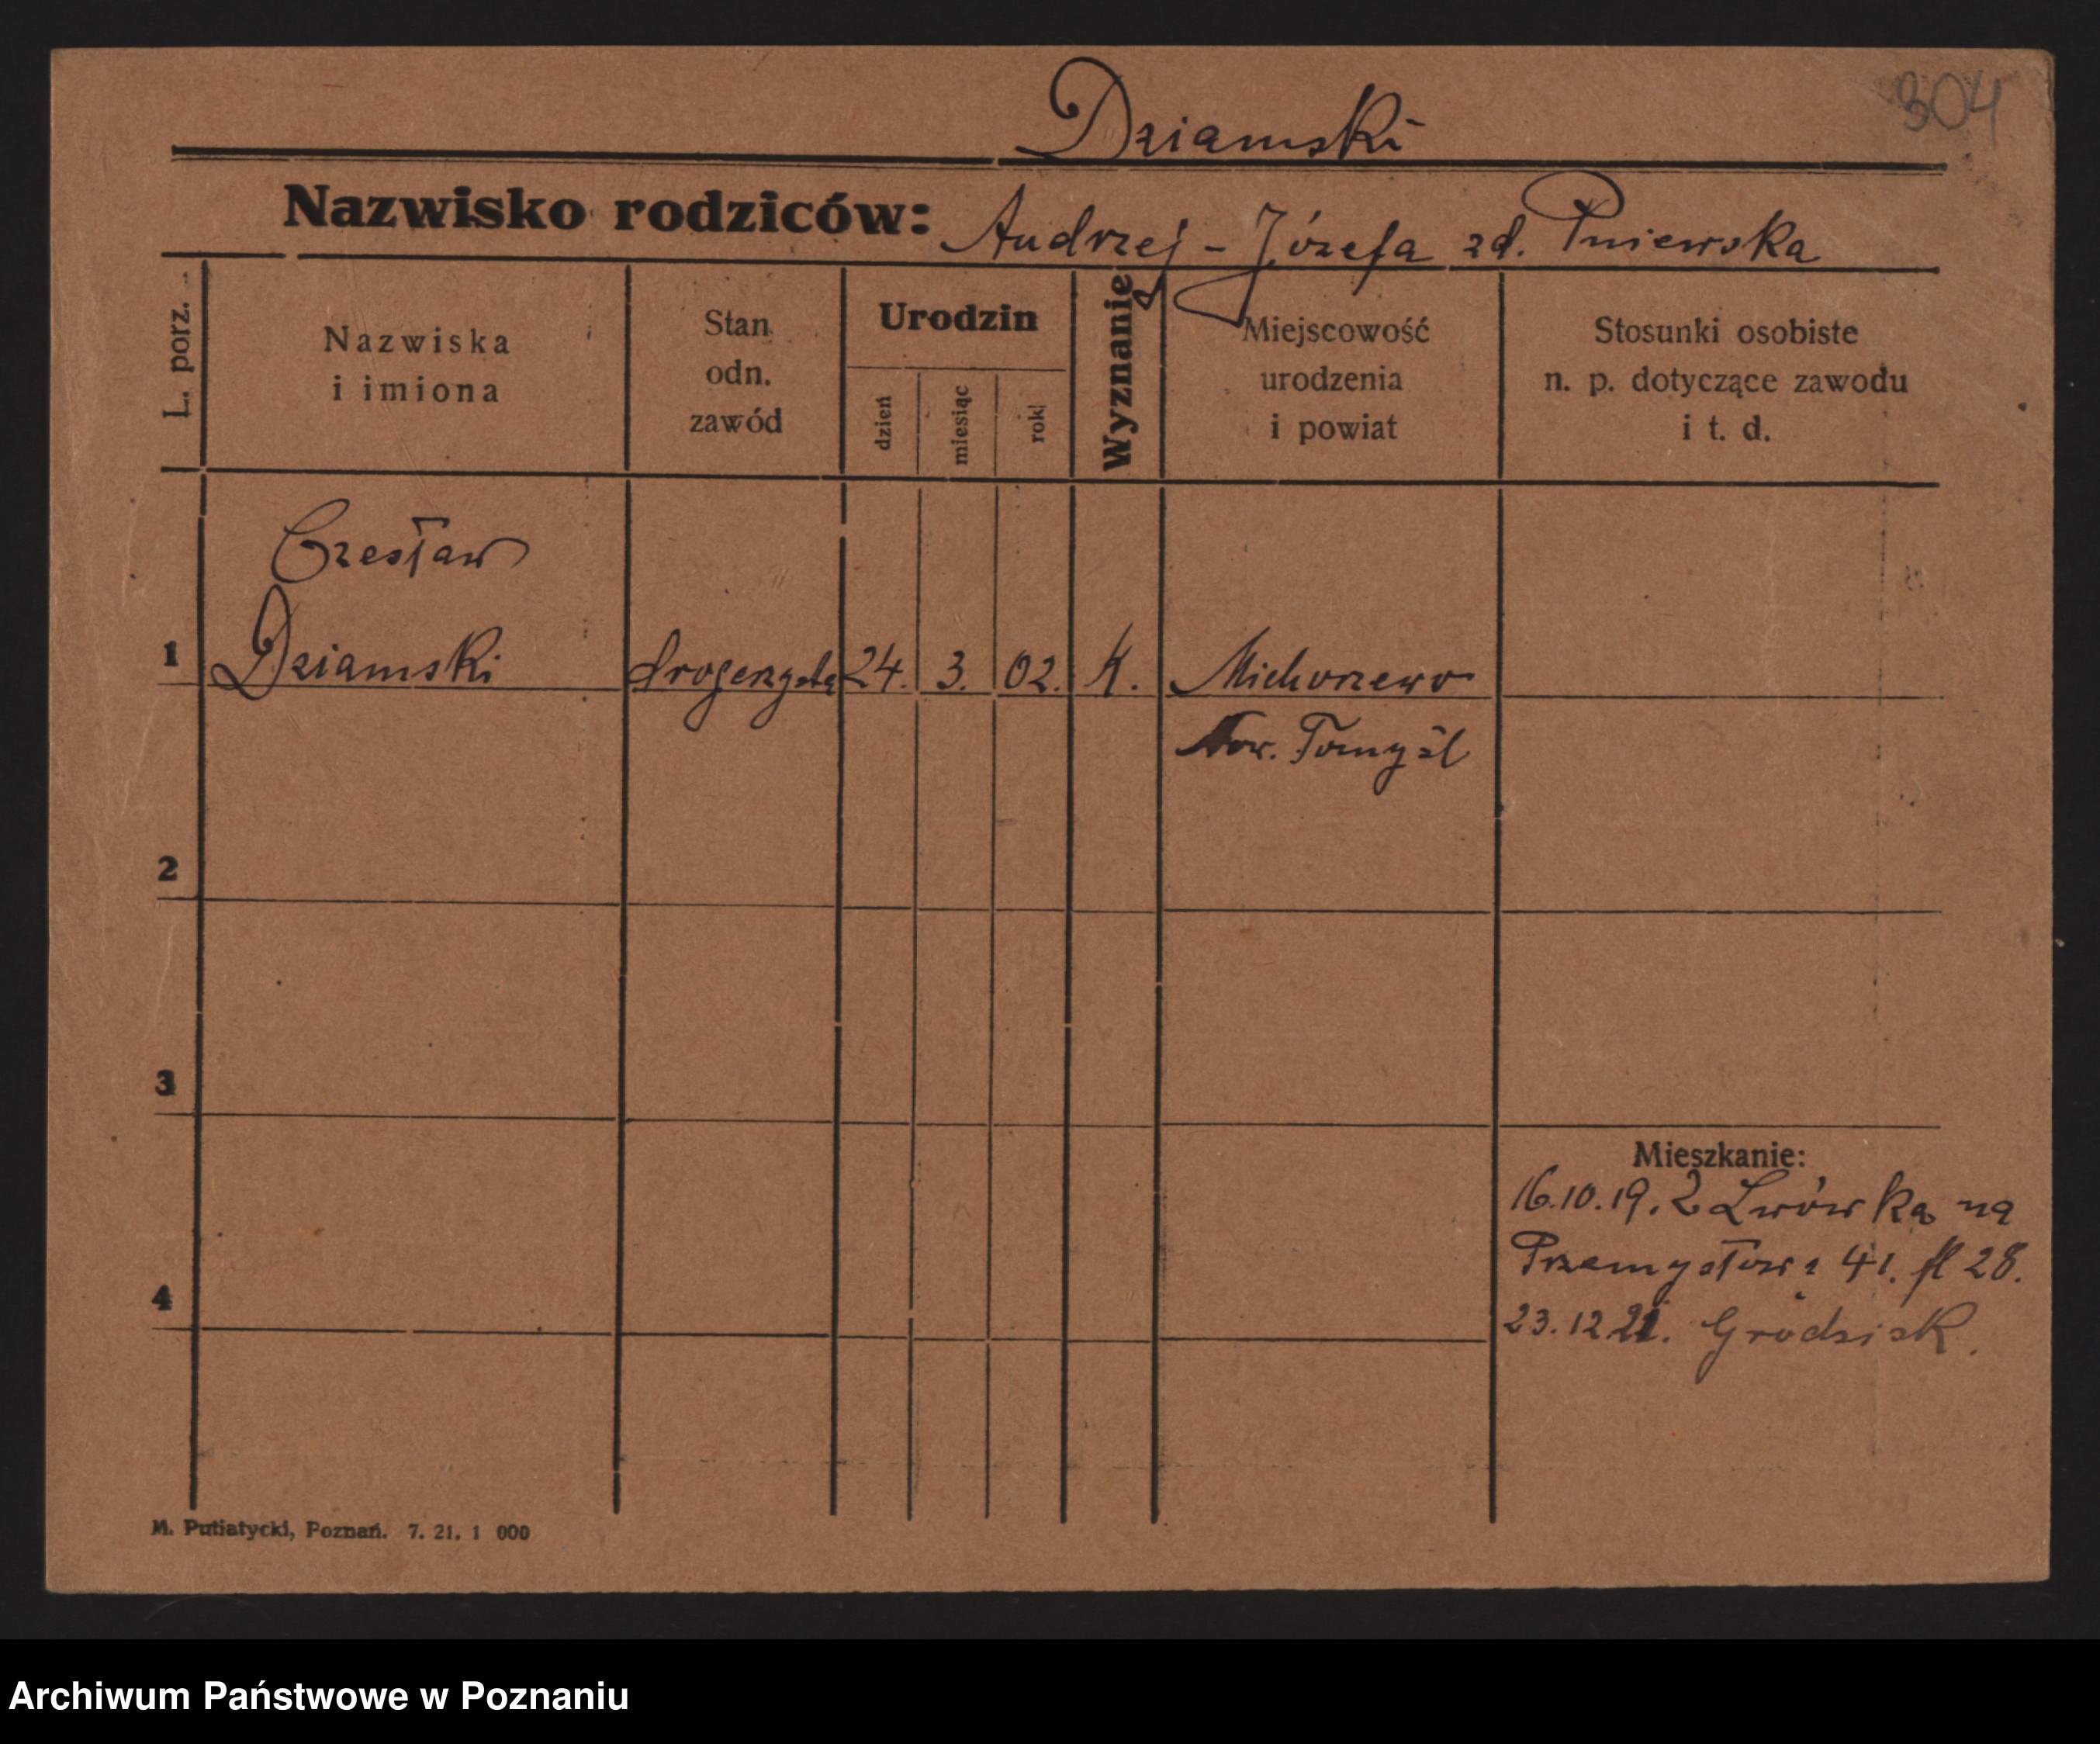 304
Dziamski
Nazwisko rodziców: Andrzej - Józefa zd. Pniewska
L. porz.
Nazwiska
i imiona
Stan
odn.
zawód
Urodzin
dzień
miesiąc
rok
Wyznanie
Miejscowość
urodzenia
i powiat
Stosunki osobiste
n. p. dotyczące zawodu
i t. d.
Czesław
1 Dziamski drogerzysta 24. 3. 02. K. Michorzewo
Now. Tomyśl
2
3
4
Mieszkanie:
16.10.19. z Lwówka na
Przemysłowa 41. 28.
23.12 21. Grodzisk.
M. Putiatycki, Poznań. 7. 21. 1 000
Archiwum Państwowe w Poznaniu